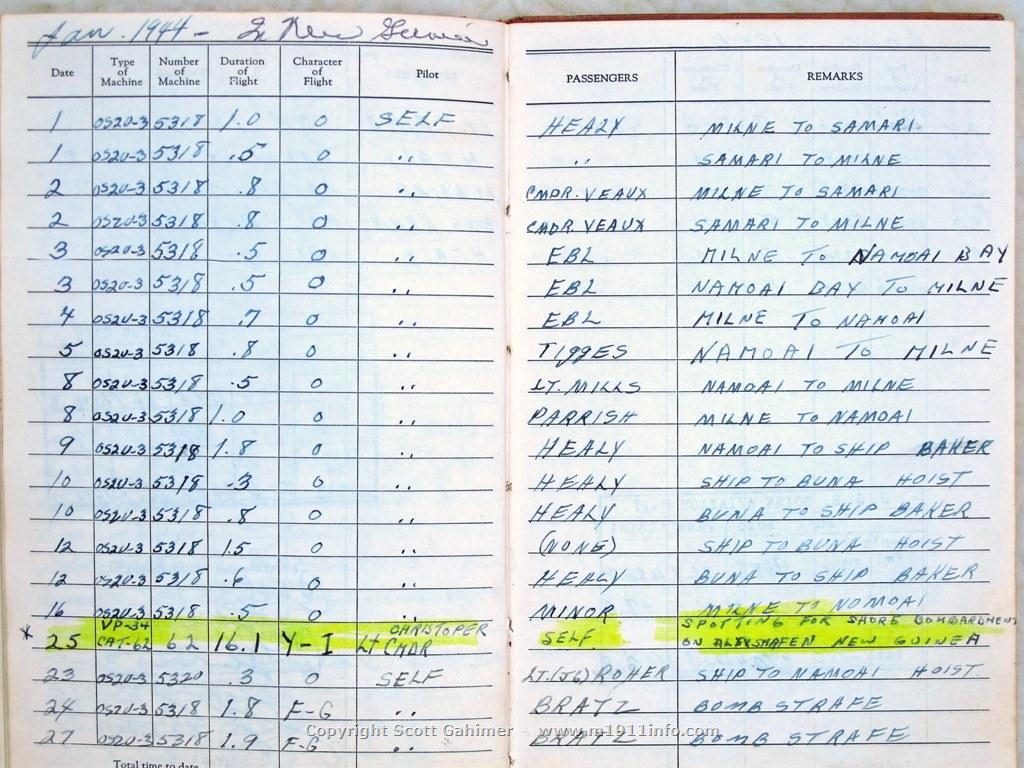 Jan. 1944 –
Date Type of Machine Number of Machine Duration of Flight Character of Flight Pilot PASSENGERS REMARKS
1 OS2U-3 5318 1.0 O SELF HEALY MILNE TO SAMARI
1 OS2U-3 5318 .5 O " " SAMARI TO MILNE
2 OS2U-3 5318 .8 O " CMDR. VEAUX MILNE TO SAMARI
2 OS2U-3 5318 .8 O " CMDR VEAUX SAMARI TO MILNE
3 OS2U-3 5318 .5 O " EBL MILNE TO NAMOAI BAY
3 OS2U-3 5318 .5 O " EBL NAMOAI BAY TO MILNE
4 OS2U-3 5318 .7 O " EBL MILNE TO NAMOAI
5 OS2U-3 5318 .8 O " TIGGES NAMOAI TO MILNE
8 OS2U-3 5318 .5 O " LT. MILLS NAMOAI TO MILNE
8 OS2U-3 5318 1.0 O " PARRISH MILNE TO NAMOAI
9 OS2U-3 5318 1.8 O " HEALY NAMOAI TO SHIP BAKER
10 OS2U-3 5318 .3 O " HEALY SHIP TO BUNA HOIST
10 OS2U-3 5318 .8 O " HEALY BUNA TO SHIP BAKER
12 OS2U-3 5318 1.5 O " (NONE) SHIP TO BUNA HOIST
12 OS2U-3 5318 .6 O " HEALY BUNA TO SHIP BAKER
16 OS2U-3 5318 .5 O " MINOR MILNE TO NOMOAI
VP-34 CHRISTOPER SPOTTING FOR SHORE BOMBARDMENT
* 25 CAT-62 62 16.1 Y-I LT CMDR SELF ON ALEXSHAFEN NEW GUINEA
23 OS2U-3 5320 .3 O SELF LT.(JG) ROHER SHIP TO NAMOAI HOIST
24 OS2U-3 5318 1.8 F-G " BRATZ BOMB STRAFE
27 OS2U-3 5318 1.9 F-G " BRATZ BOMB STRAFE
Copyright Scott Gahimer - www.m1911info.com
Total time to date